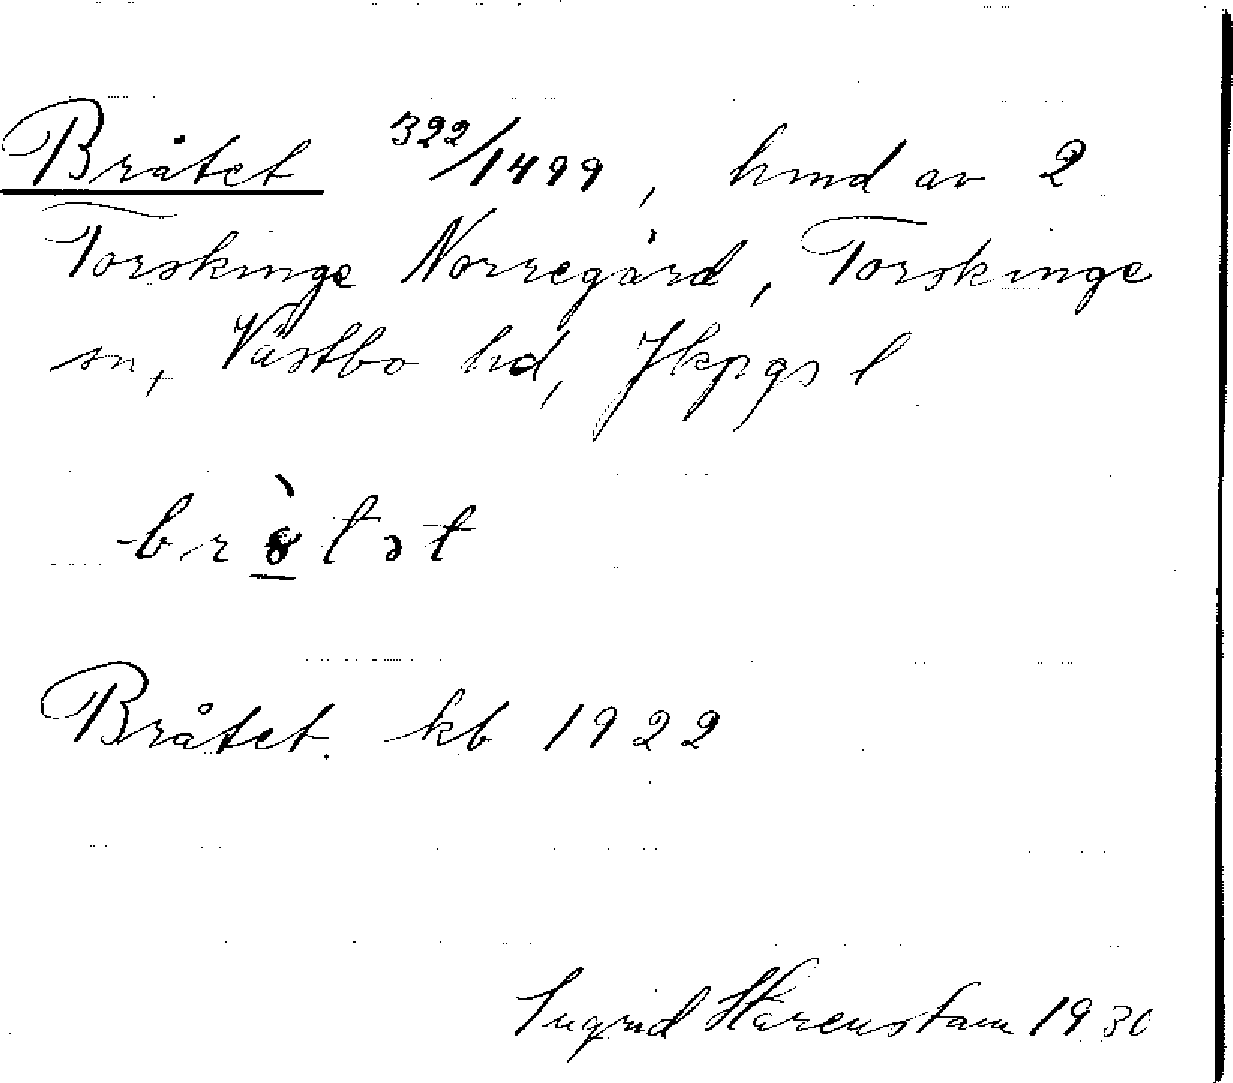 Bråtet 322/1499, hmd av 2
Torskinge Norregård, Torskinge
sn, Västbo hd, Jkpgs l
brò̱tət
Bråtet. kb 1922
Ingrid Härenstam 1930